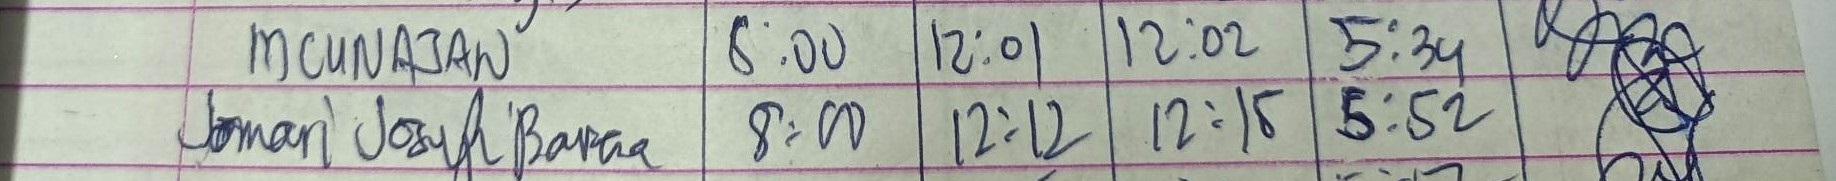 MCUNAJAN 8:00 12:01 12:02 5:34
Jomari Joseph 8:00 12:12 12:15 5:52